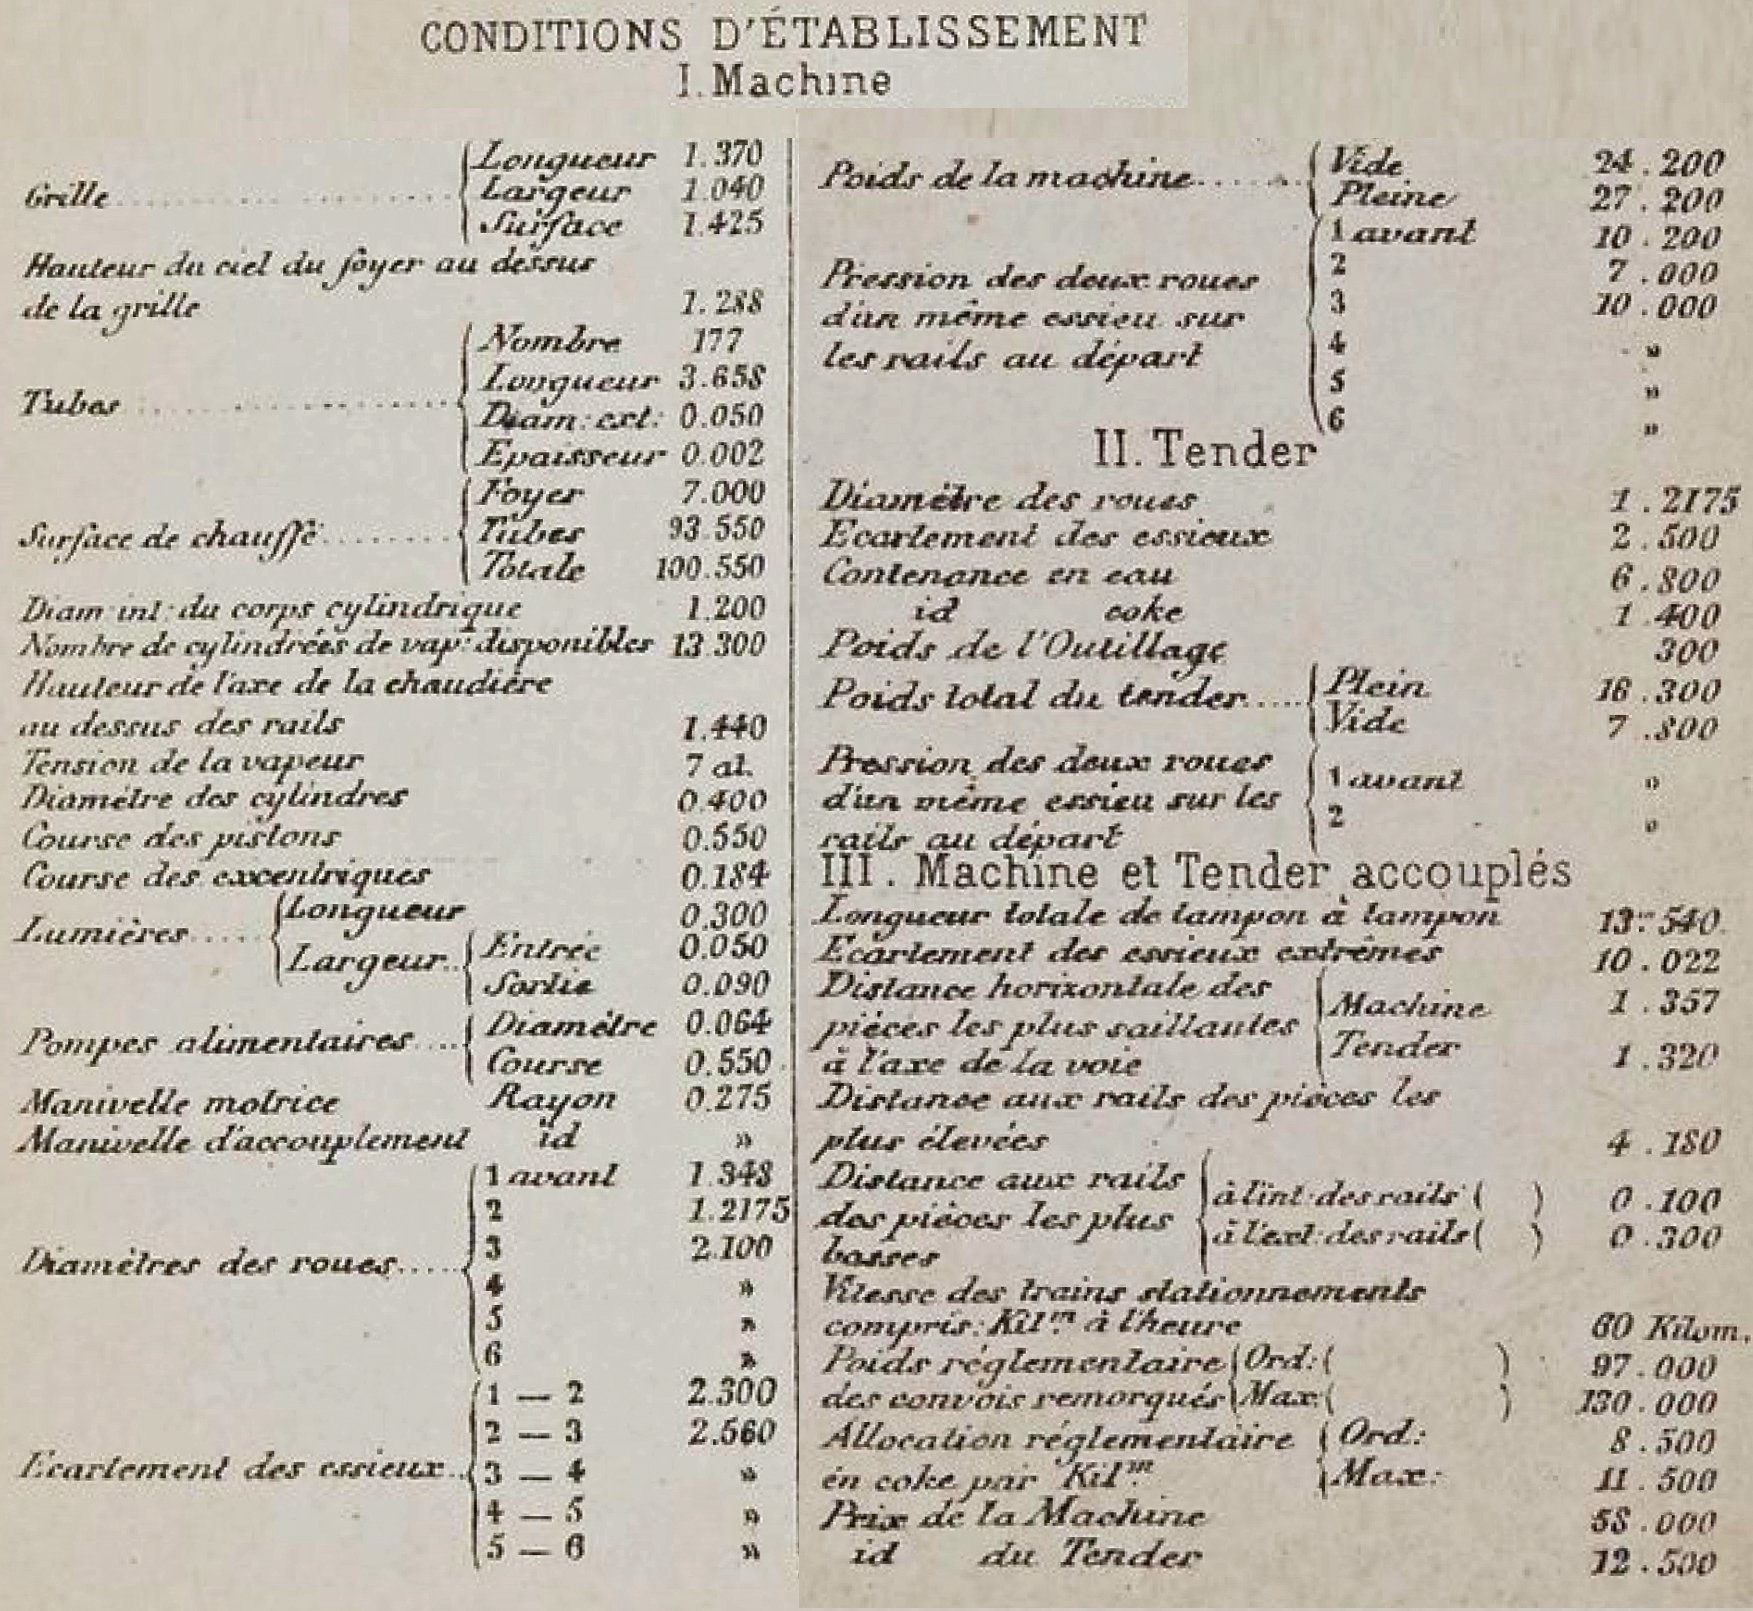 CONDITIONS D'ÉTABLISSEMENT
I. Machine
Grille { Longueur 1.370
Largeur 1.040
Surface 1.425
Hauteur du ciel du foyer au dessus
de la grille 1.288
Tubes { Nombre 177
Longueur 3.658
Diam: ext: 0.050
Epaisseur 0.002
Surface de chauffe { Foyer 7.000
Tubes 93.550
Totale 100.550
Diam: int: du corps cylindrique 1.200
Nombre de cylindrées de vap: disponibles 13.300
Hauteur de l'axe de la chaudière
au dessus des rails 1.440
Tension de la vapeur 7 at.
Diamètre des cylindres 0.400
Course des pistons 0.550
Course des excentriques 0.184
Lumières { Longueur 0.300
Largeur { Entrée 0.050
Sortie 0.090
Pompes alimentaires { Diamètre 0.064
Course 0.550
Manivelle motrice Rayon 0.275
Manivelle d'accouplement id "
Diamètres des roues { 1 avant 1.348
2 1.2175
3 2.100
4 "
5 "
6 "
Ecartement des essieux { 1 — 2 2.300
2 — 3 2.560
3 — 4 "
4 — 5 "
5 — 6 "
Poids de la machine { Vide 24.200
Pleine 27.200
Pression des deux roues
d'un même essieu sur
les rails au départ { 1 avant 10.200
2 7.000
3 10.000
4 "
5 "
6 "
II. Tender
Diamètre des roues 1.2175
Ecartement des essieux 2.500
Contenance en eau 6.800
id coke 1.400
Poids de l'Outillage 300
Poids total du tender { Plein 16.300
Vide 7.800
Pression des deux roues
d'un même essieu sur les
rails au départ { 1 avant "
2 "
III. Machine et Tender accouplés
Longueur totale de tampon à tampon 13.m 540.
Ecartement des essieux extrêmes 10.022
Distance horizontale des
pièces les plus saillantes
à l'axe de la voie { Machine 1.357
Tender 1.320
Distance aux rails des pièces les
plus élevées 4.180
Distance aux rails
des pièces les plus
basses { à l'int: des rails ( ) 0.100
à l'ext: des rails ( ) 0.300
Vitesse des trains stationnements
compris: Kil.m à l'heure 60 Kilom.
Poids réglementaire { Ord: ( ) 97.000
des convois remorqués Max: ( ) 130.000
Allocation réglementaire { Ord: 8.500
en coke par Kil.m Max: 11.500
Prix de la Machine 58.000
id du Tender 12.500